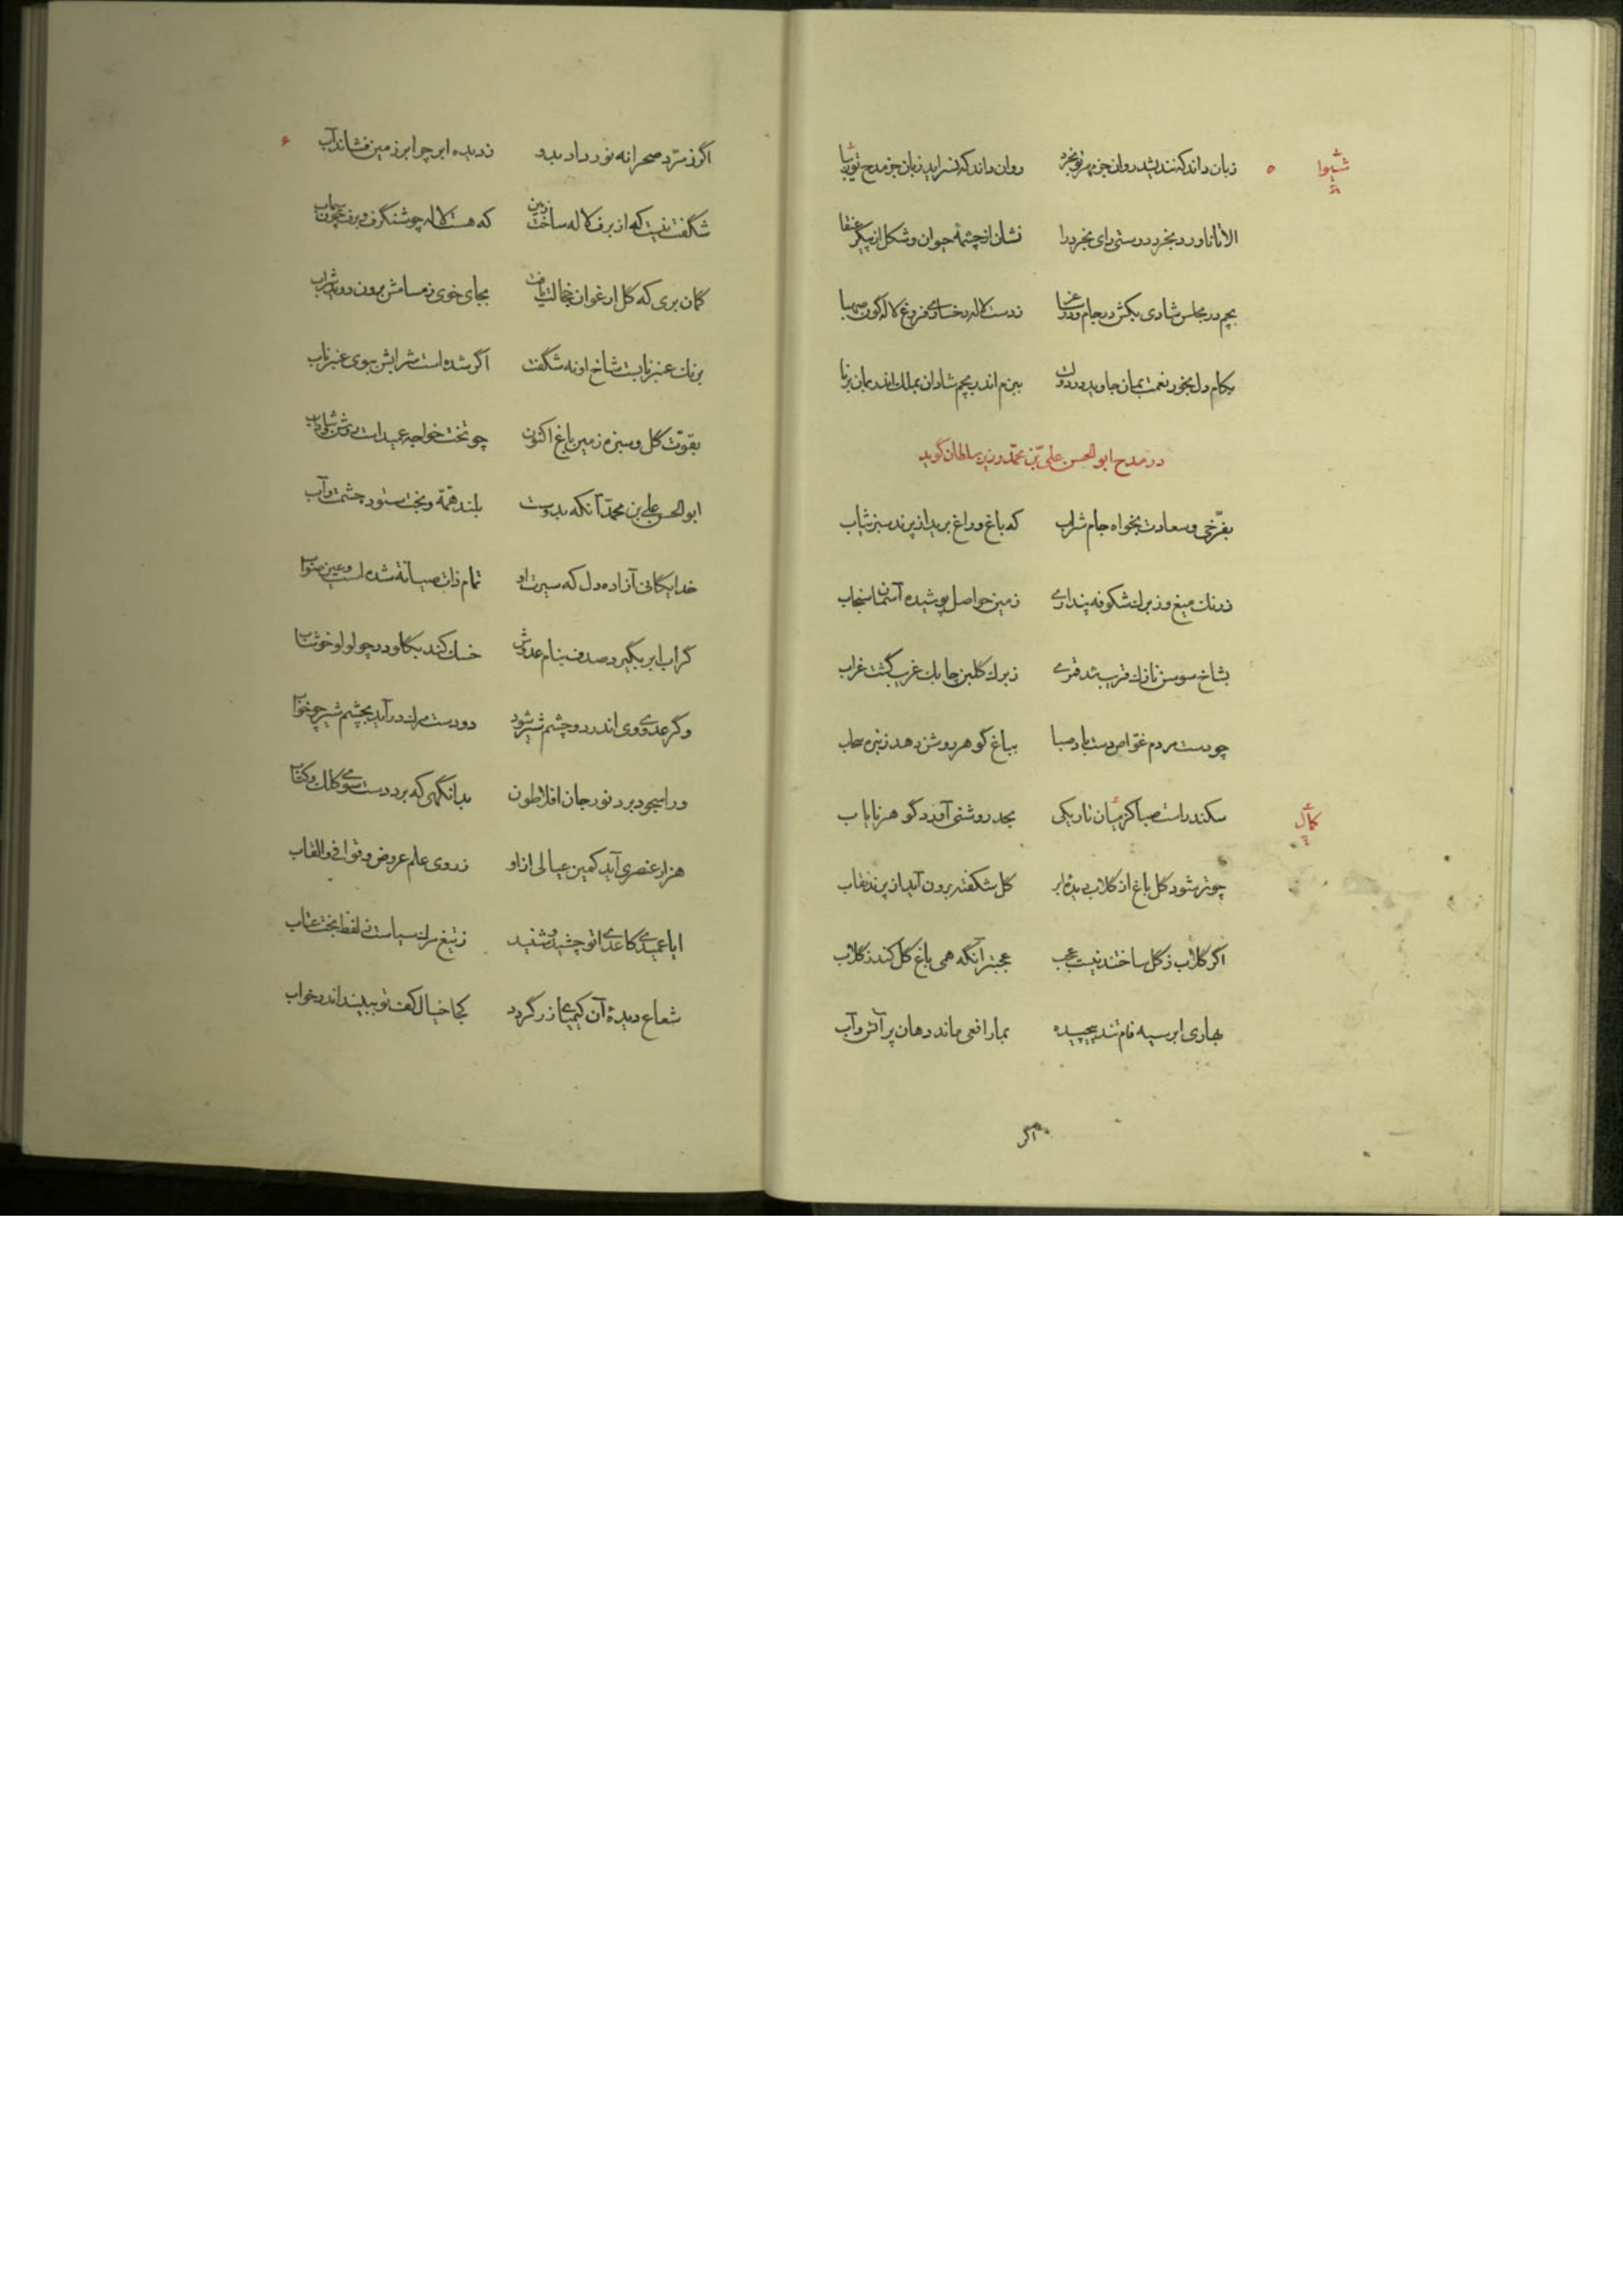 زبان داند که نندیشد روان جز مهر تو بخرد روان داند که نسراید زبان جز مدح تو زیبا
شیوا
الا تا ناورد بخرد درستی رای بخرد را نشان از چشمهٔ حیوان و شکل از پیکر عنقا
بچم در مجلس شادی بکش در جام ز دست لاله رخساری فروغ لاله گون صهبا
بکام دل بخور نعمت بمان جاوید در دولت ببزم اندر بچم شادان بملک اندر بمان برنا
در مدح ابو الحسن علی بن محمّد وزیر سلطان گوید
بفرّخی و سعادت بخواه جام شراب که باغ و راغ برید از پرند سبز ثیاب
ز رنك میغ و ز برك شكوفه پنداری زمین حواصل پوشیده آسمان سنجاب
بشاخ سوسن نازك قریب شد قمری ز برك گلبن چابك غریب گشت غراب
چو دست مردم غوّاص دست باد صبا بباغ گوهر روشن دهد ز تیره سحاب
سکندر است صبا کز میان تاریکی بجد روشنی آورد گوهر نایاب
کآن
چو تر شود گل باغ از گلاب دیدهٔ ابر گل شکفته برون آید از پرند نقاب
اگر گلاب ز گل ساختند نیست عجب عجبتر آنگه همی باغ گل کند ز گلاب
بهاری ابر سیه فام تند پیچیده بمار افعی ماند دهان پر آتش و آب
اگر
اگر زمرّد صحرا نه نور داد بدو ز دیده ابر چرا بر زمین فشاند آب
شگفت نیست که از برف لاله ساخت زمین که هست لاله چو شنگرف و برف چون سیماب
گمان بری که گل ارغوان خجالت یافت بجای خوی ز مسامش برون دوید شراب
برنك عنبر نابست شاخ او نه شگفت اگر شده است شرابش ببوی عنبر ناب
بقوّت گل و سبزه زمین باغ اکنون چو تخت خواجه عمید است
ابو الحسن علی بن محمّد آنکه بدوست بلند همّة و بخت ستور چشمت و آب
خدایگانی آزاده دل که سیرت او تمام ذات صیانة شده است و عین صواب
گر آب ابر بگیرد صدف بنام عدوش خسك کند بگلو در چو لولو خوشاب
وگر عدوی وی اندر دو چشم شیر شود دو دست مرك در آید بچشم شیر چو خواب
ورا سجود برد نور جان افلاطون بدانگهی که برد دست سوی کلك و کتاب
هزار عنصری آید کمین عیالی از او ز روی علم عروض و قوافی و القاب
ایا عمیدی کاعدای تو چشید و شنید ز تیغ مرك سیاست ز لفظ بخت عتاب
شعاع دیدهٔ آن کیمیای زر گردد کجا خیال کف تو ببیند اندر خواب